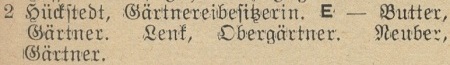 2 Hückstedt, Gärtnereibesitzerin. E — Butter,
Gärtner. Lenk, Obergärtner. Neuber,
Gärtner.